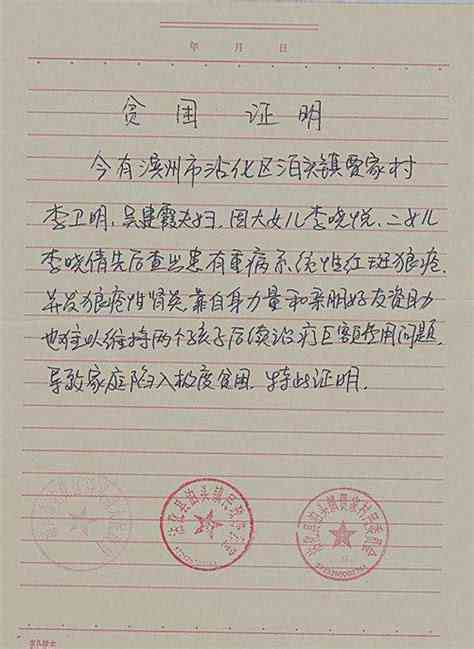 年 月 日
贫困证明
今有滨州市沾化区泊头镇贾家村
李卫明、吴建霞夫妇,因大女儿李晓悦、二女儿
李晓倩先后查出患有重病系统性红斑狼疮
并发狼疮性肾炎,靠自身力量和亲朋好友资助
也难以维持两个孩子后续治疗巨额费用问题,
导致家庭陷入极度贫困,特此证明.
沾化县泊头镇
沾化县泊头镇贾家村村民委员会